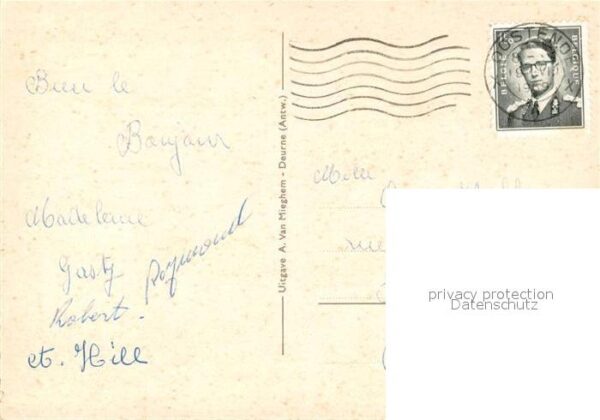 Bien le
Bonjour
Madeleine
Gasty
Raymond
Robert.
et. Hill
Uitgave A. Van Mieghem - Deurne (Antw.)
OOSTENDE
BELGIE BELGIQUE
Mlle
rue
privacy protection
Datenschutz